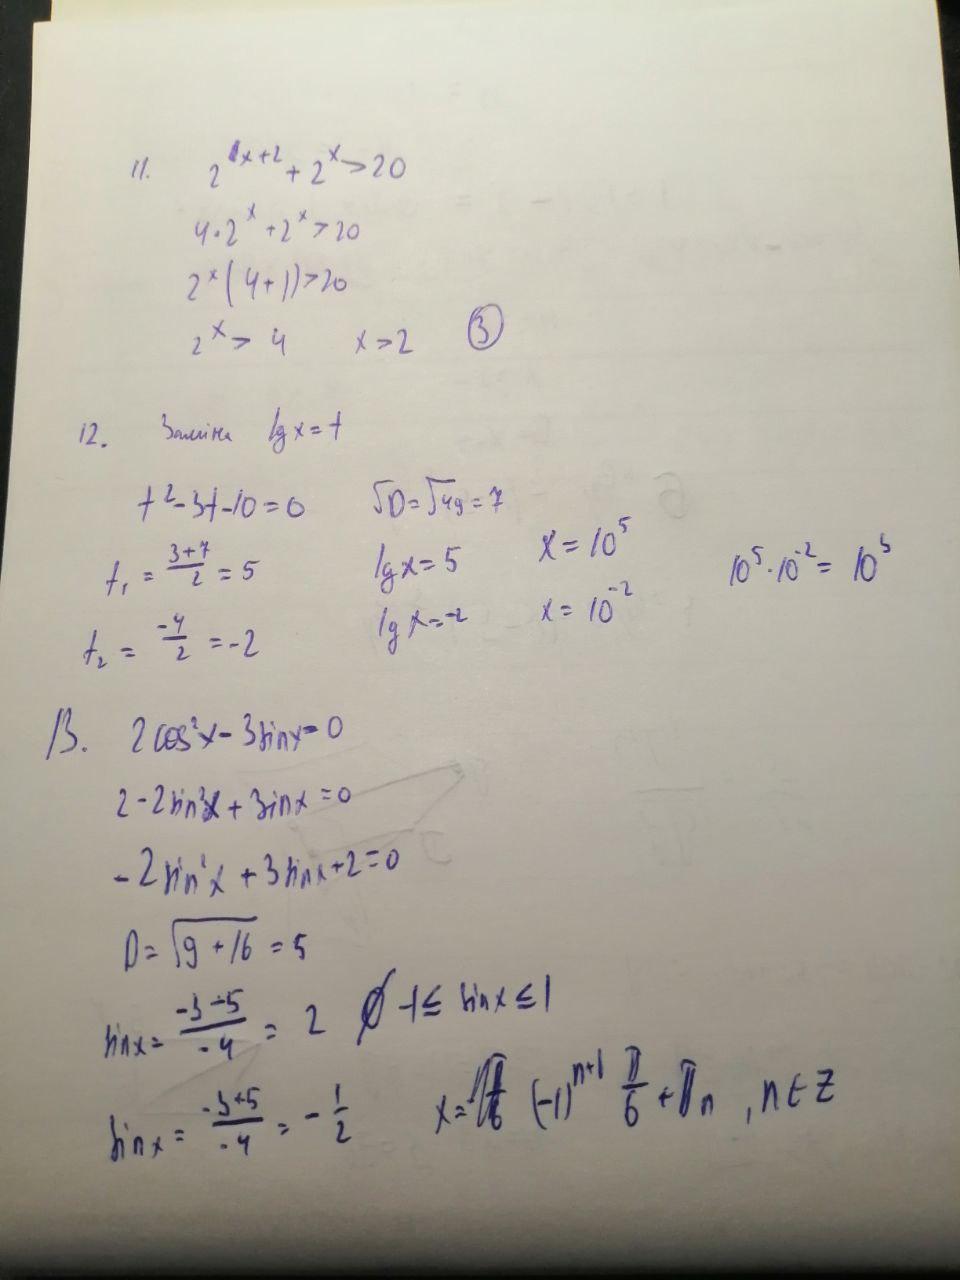 11. 2^{x+2} + 2^x > 20
4·2^x + 2^x > 20
2^x(4+1) > 20
2^x > 4 x > 2 ③
12. Заміна lg x = t
t² - 3t - 10 = 0 √D = √49 = 7
t₁ = \frac{3+7}{2} = 5 lg x = 5 x = 10^5 10^5 · 10^{-2} = 10^3
t₂ = \frac{-4}{2} = -2 lg x = -2 x = 10^{-2}
13. 2cos²x - 3sinx = 0
2 - 2sin²x + 3sinx = 0
-2sin²x + 3sinx + 2 = 0
D = √9 + 16 = 5
sinx = \frac{-3-5}{-4} = 2 ∅ -1 ≤ sinx ≤ 1
sinx = \frac{-3+5}{-4} = -\frac{1}{2} x = (-1)^{n+1} \frac{π}{6} + πn, n ∈ Z